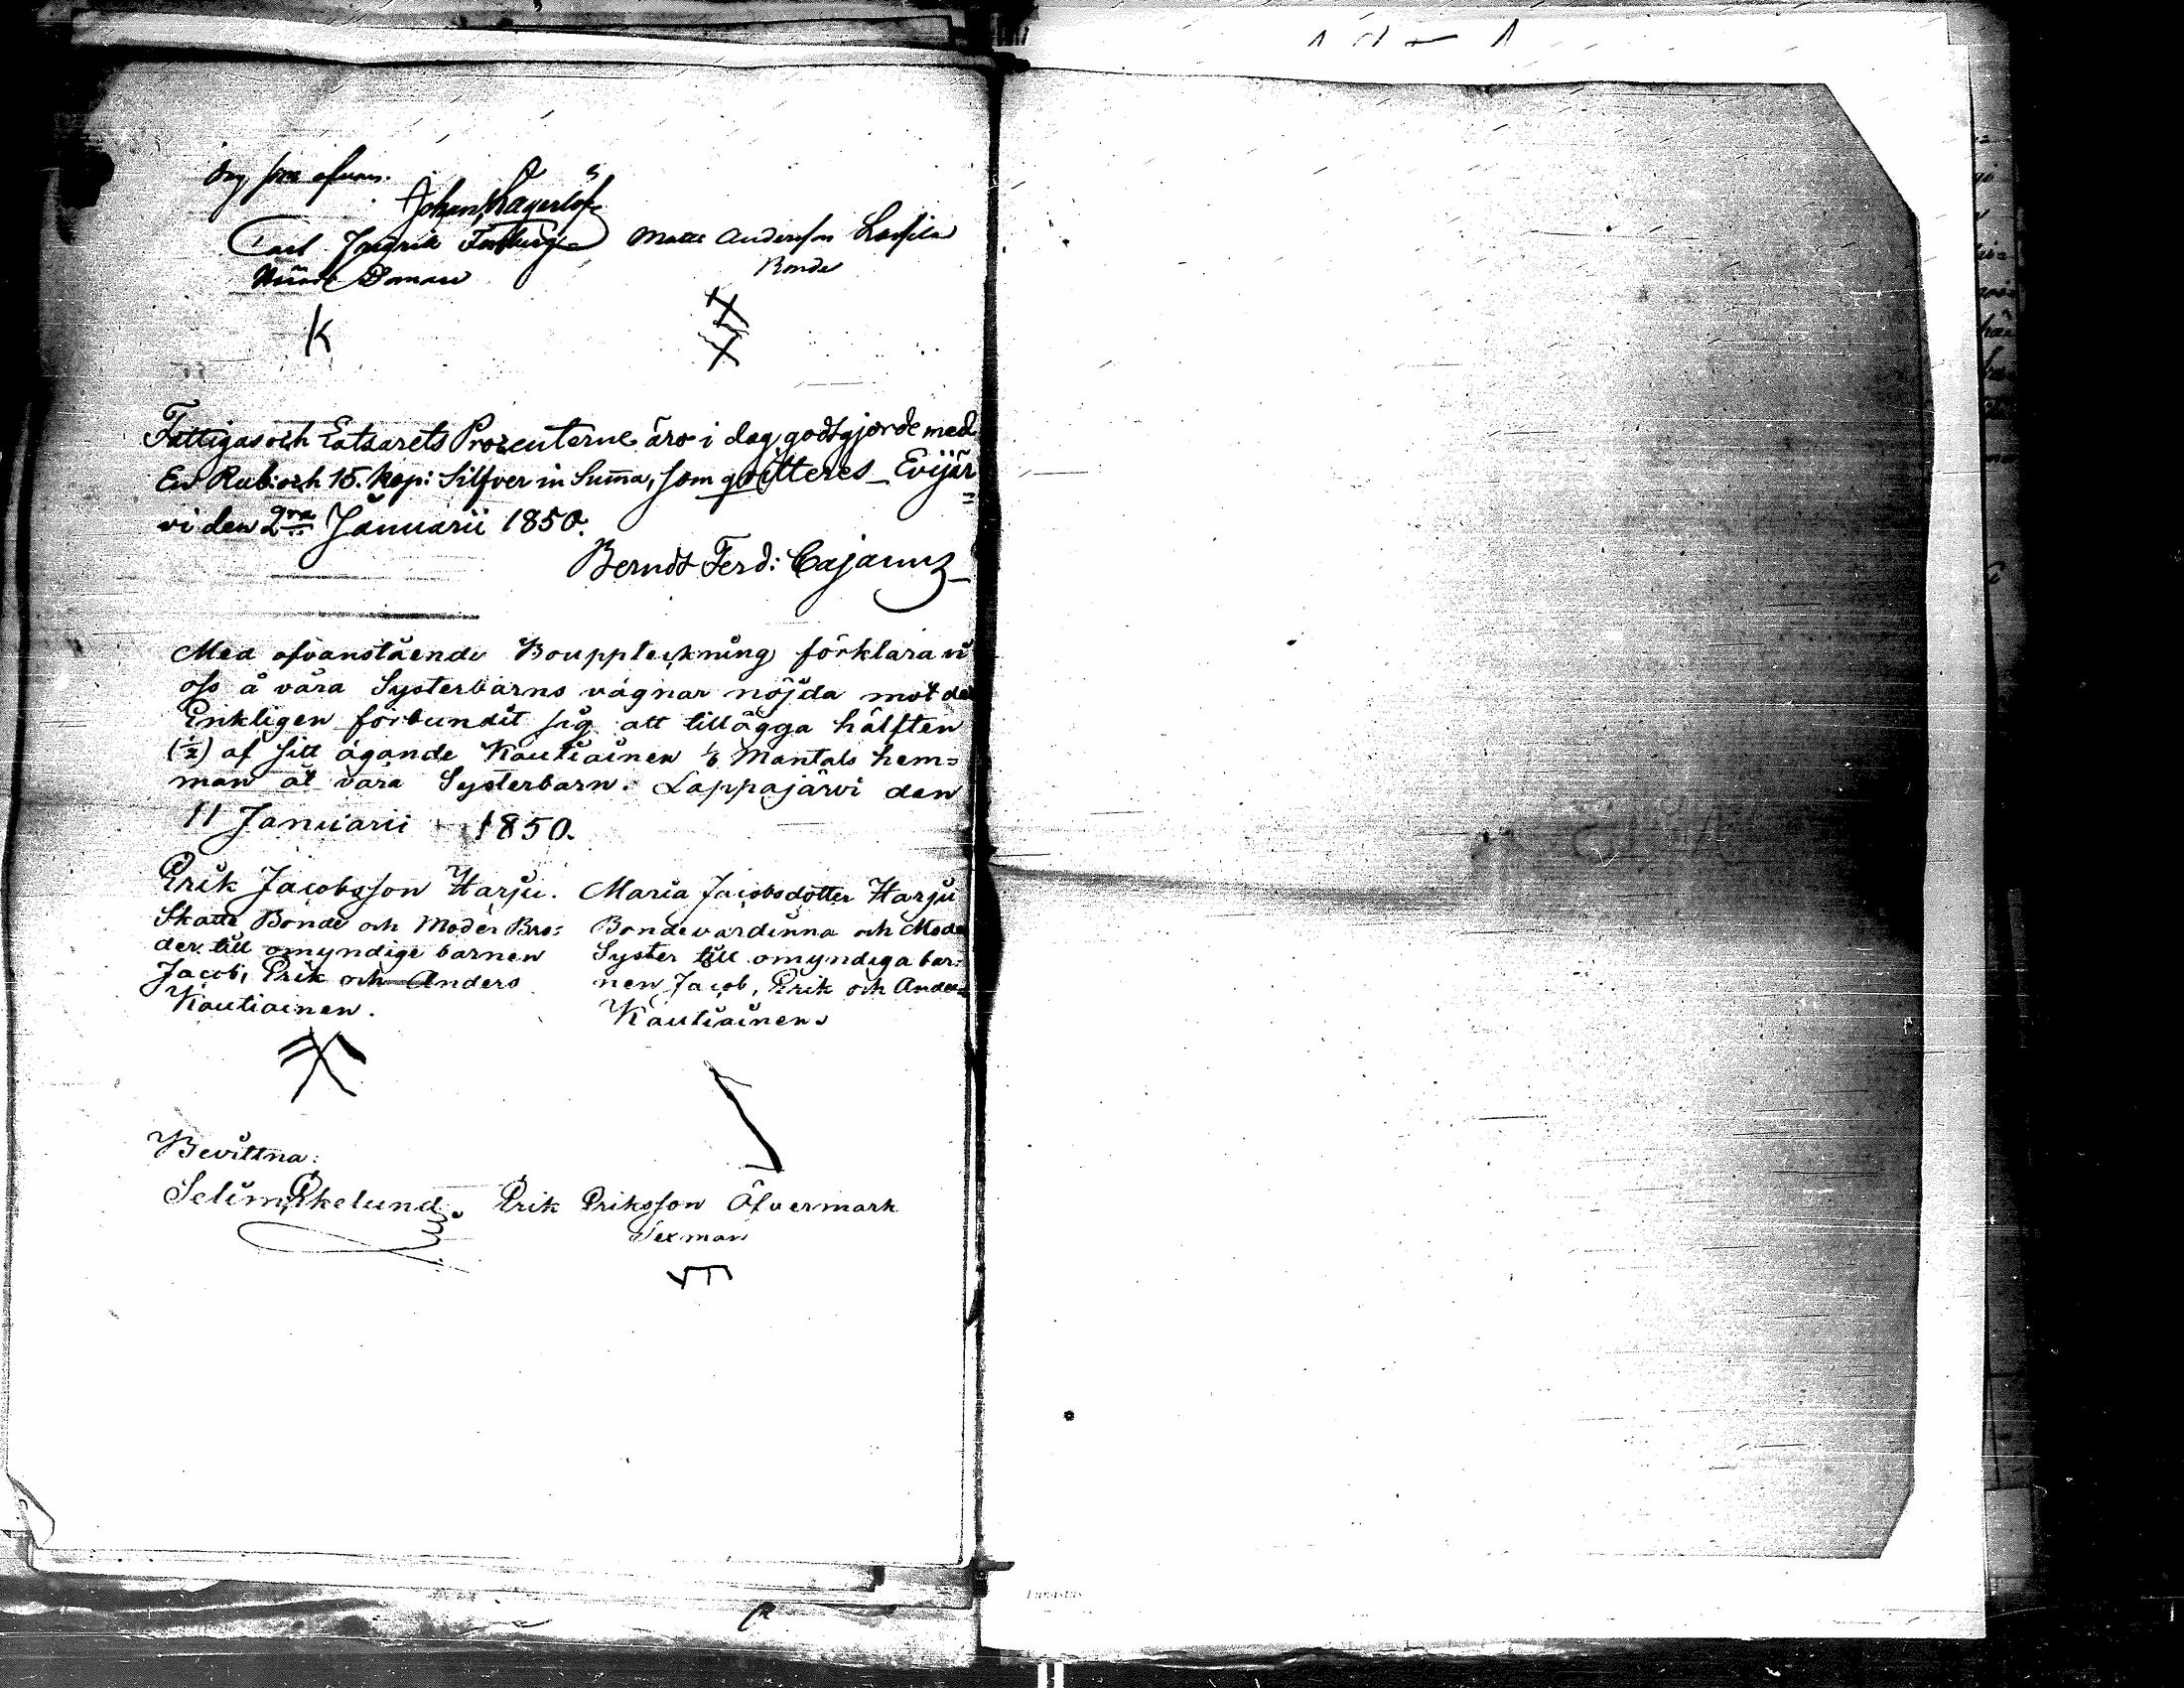 dag som ofvan.
Johan Lagerlöf
Carl Matts Andersson Lassila
Bonde
K
Fattigas och Latsarets Procenterne äro i dag godtgjorde med
En Rub: och 15. kop: Silfver in Summa, som qvitteres _ Evijär=
vi den 2dra Januarii 1850.
Berndt Ferd: Cajanus
Med ofvanstående Bouppteckning förklara vi
oss å våra Systerbarns vägnar nöjda mot det
Enklingen förbundit sig att tillägga hälften
(½) af sitt ägande Kautiainen 1/6 Mantals hem=
man åt våra Systerbarn. Lappajärvi den
11 Januarii 1850.
Erik Jacobsson Harju. Maria Jacobsdotter Harju
Skatte Bonde och Moder Bro=
der till omyndige barnen
Jacob, Erik och Anders
Kautiainen.
Bondevärdinna och Moder
Syster till omyndiga bar=
nen Jacob, Erik och Anders
Kautiainen.
Bevittna:
Selim Ekelund. Erik Eriksson Öfvermark
Sexman